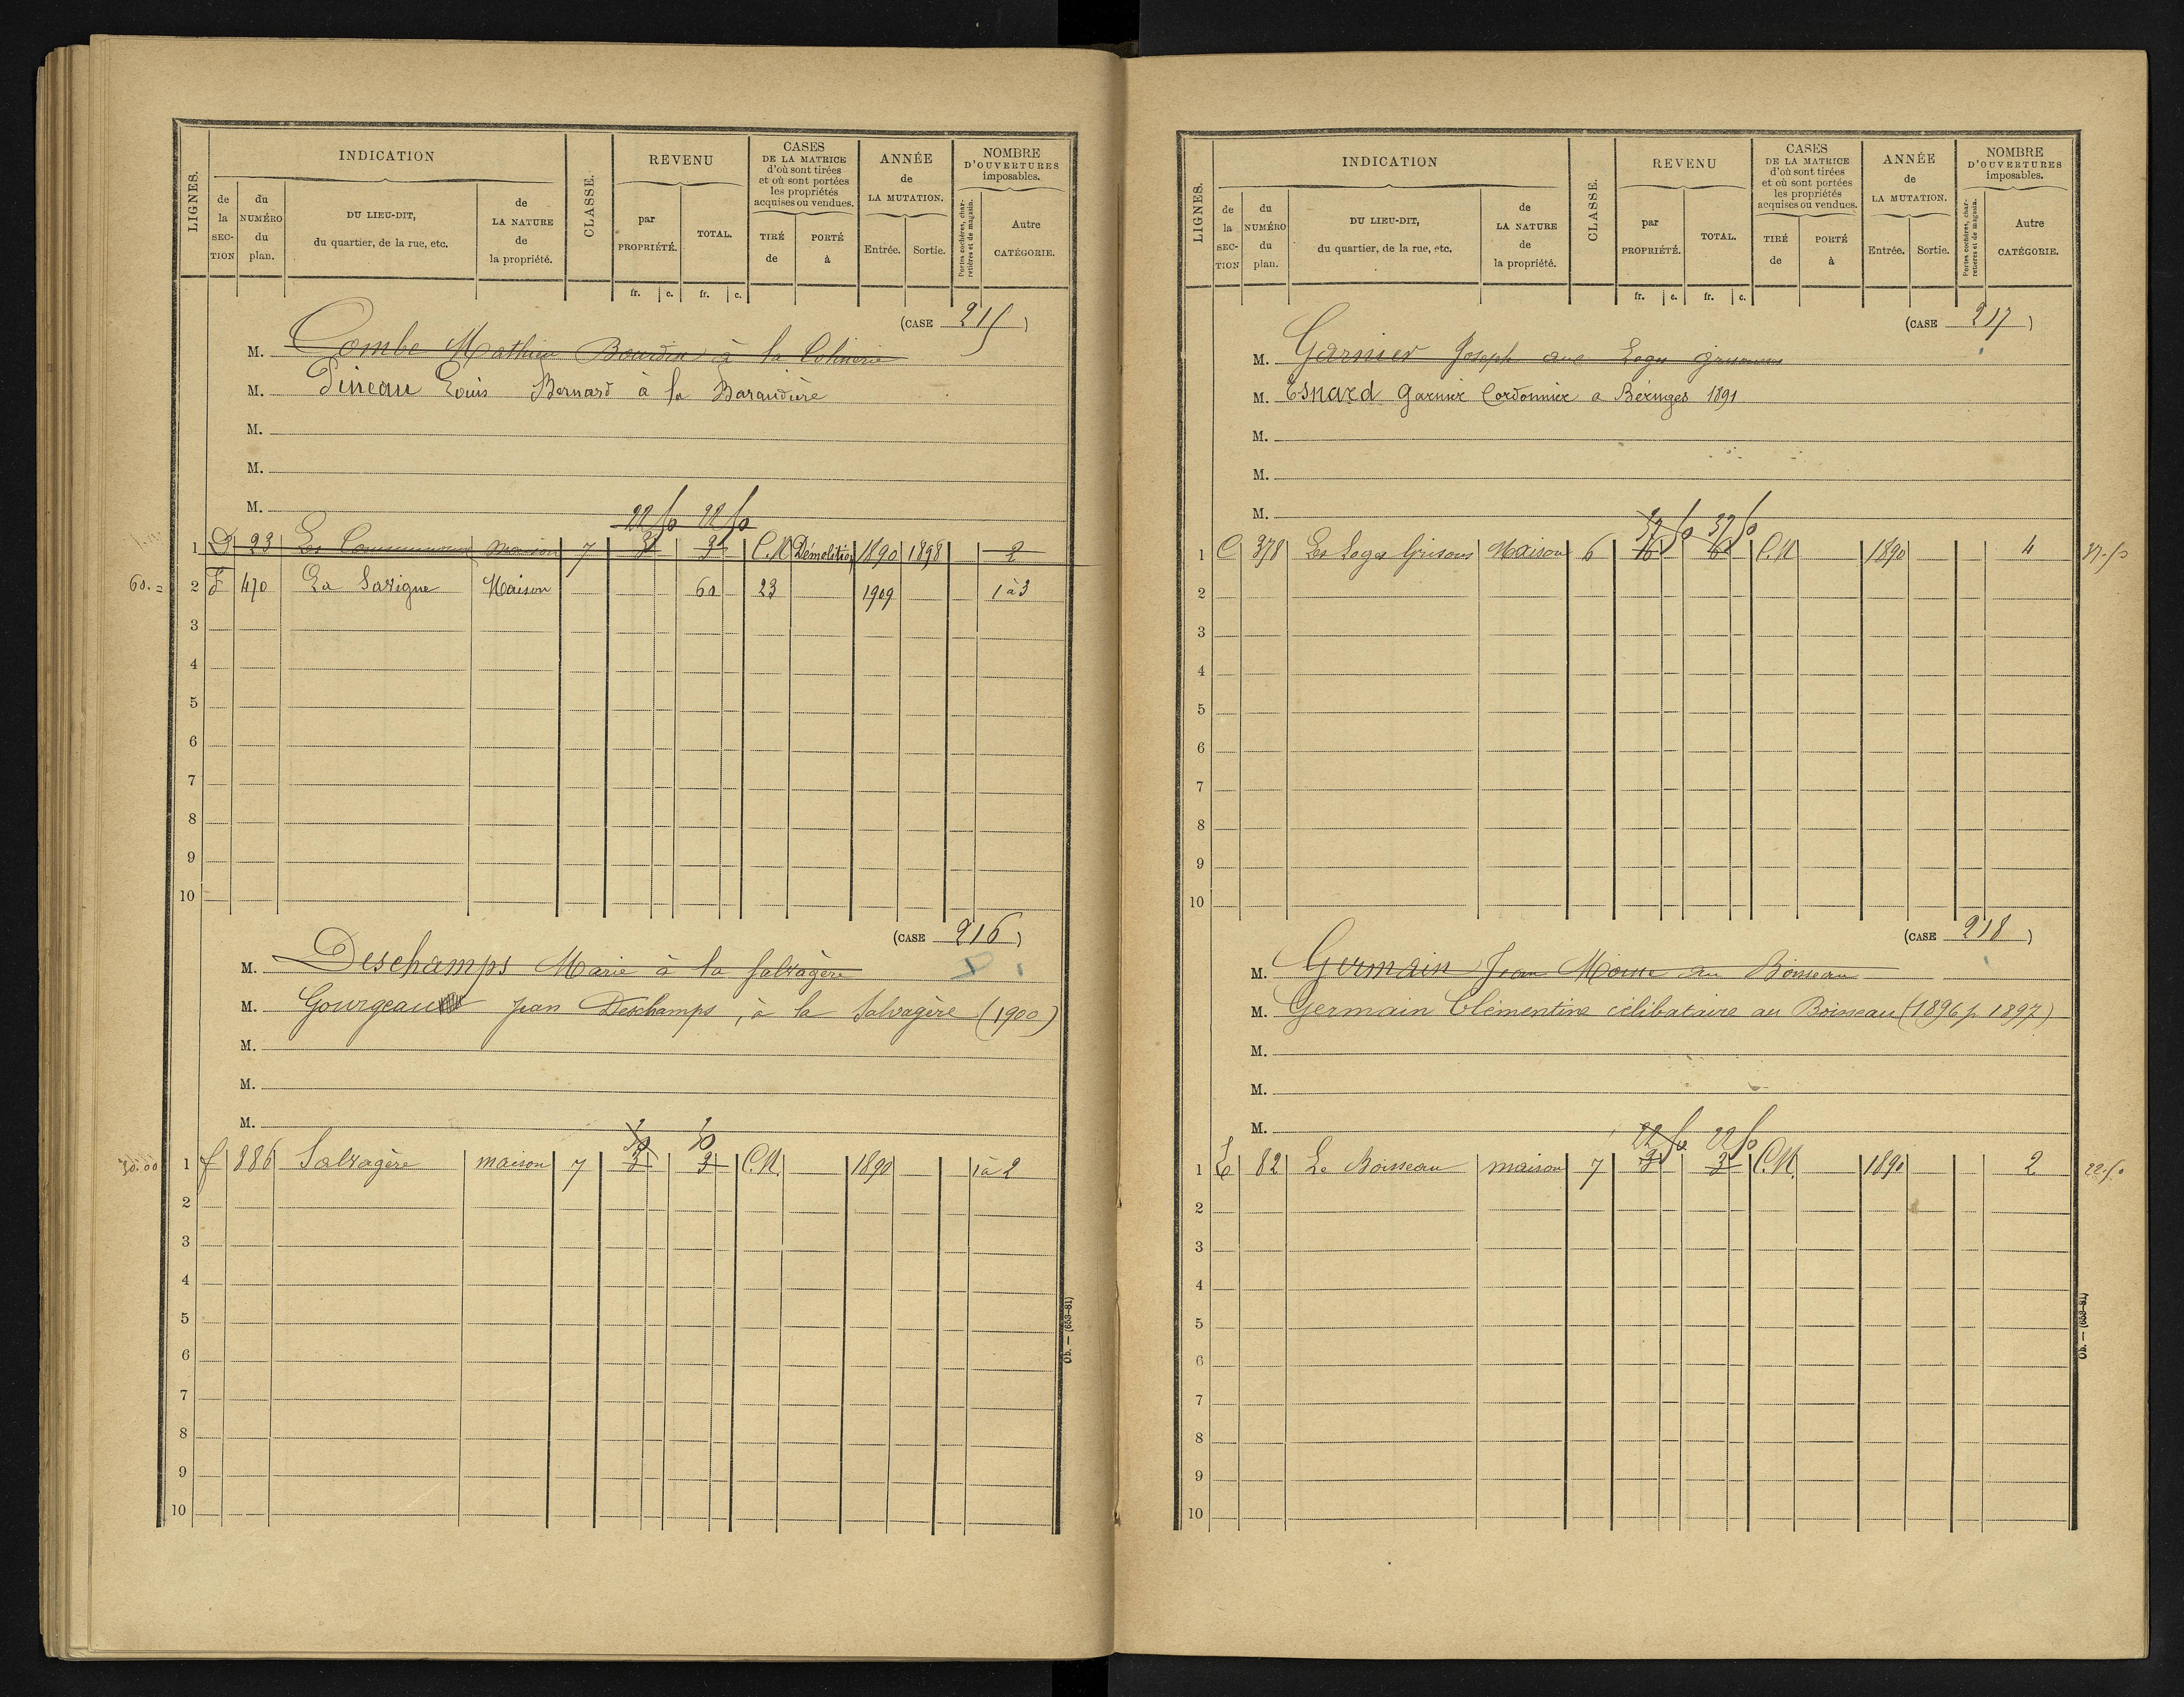 LIGNES.
INDICATION
de la SECTION
du NUMÉRO du plan.
DU LIEU-DIT, du quartier, de la rue, etc.
de LA NATURE de la propriété.
CLASSE.
REVENU
par PROPRIÉTÉ.
TOTAL.
CASES DE LA MATRICE d'où sont tirées et où sont portées les propriétés acquises ou vendues.
TIRÉ de
PORTÉ à
ANNÉE de LA MUTATION.
Entrée.
Sortie.
NOMBRE D'OUVERTURES imposables.
Portes cochères, charretières et de magasin.
Autre CATÉGORIE.
fr. c. fr. c.
(CASE 215)
M. Combe Mathieu Bourdin à la
M. Pineau Louis Bernard à la Baraudière
M.
M.
M.
22 50 22 50
1 D 23 Les maison 7 3 3 C.N Démolition 1890 1898 2
60. = 2 F 470 La Savigne Maison 60 23 1909 1 à 3
3
4
5
6
7
8
9
10
(CASE 216)
M. Deschamps Marie à la Salvagère
M. Gourgeau Jean Deschamps, à la Salvagère (1900)
M.
M.
M.
30 30
30.00 1 F 886 Salvagère maison 7 3 3 C.N. 1890 1 à 2
2
3
4
5
6
7
8
9
10
Ob. — (653-81)
LIGNES.
INDICATION
de la SECTION
du NUMÉRO du plan.
DU LIEU-DIT, du quartier, de la rue, etc.
de LA NATURE de la propriété.
CLASSE.
REVENU
par PROPRIÉTÉ.
TOTAL.
CASES DE LA MATRICE d'où sont tirées et où sont portées les propriétés acquises ou vendues.
TIRÉ de
PORTÉ à
ANNÉE de LA MUTATION.
Entrée.
Sortie.
NOMBRE D'OUVERTURES imposables.
Portes cochères, charretières et de magasin.
Autre CATÉGORIE.
fr. c. fr. c.
(CASE 217)
M. Garnier Joseph aux Loges
M. Esnard Garnier Cordonnier a Béruges 1891
M.
M.
M.
37 50 37 50
1 C 378 Les Loges Grisons Maison 6 C.N 1890 4 37.50
2
3
4
5
6
7
8
9
10
(CASE 218)
M. Germain Jean au Boisseau
M. Germain Clémentine célibataire au Boisseau (1896 p. 1897)
M.
M.
M.
22 50 22 50
1 E 82 Le Boisseau maison 7 3 3 C.N. 1890 2 22.50
2
3
4
5
6
7
8
9
10
Ob. — (653-81)